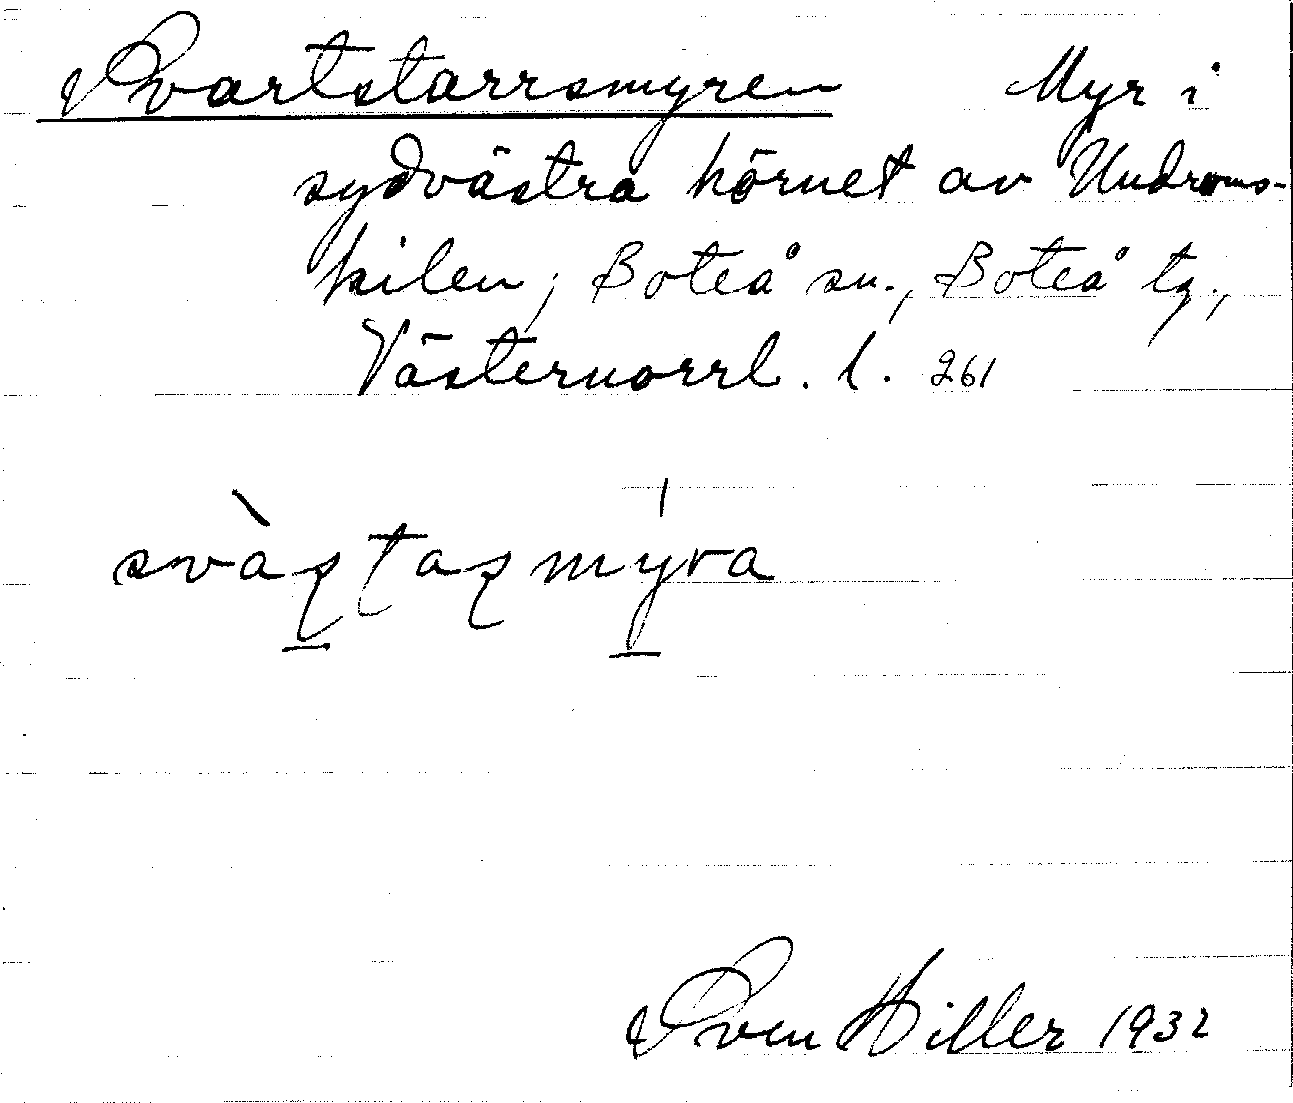 Svartstarrsmyren Myr i
sydvästra hörnet av Undroms-
kilen; Boteå sn., Boteå tg.,
Västernorrl. l. 261
Sven Hiller 1932